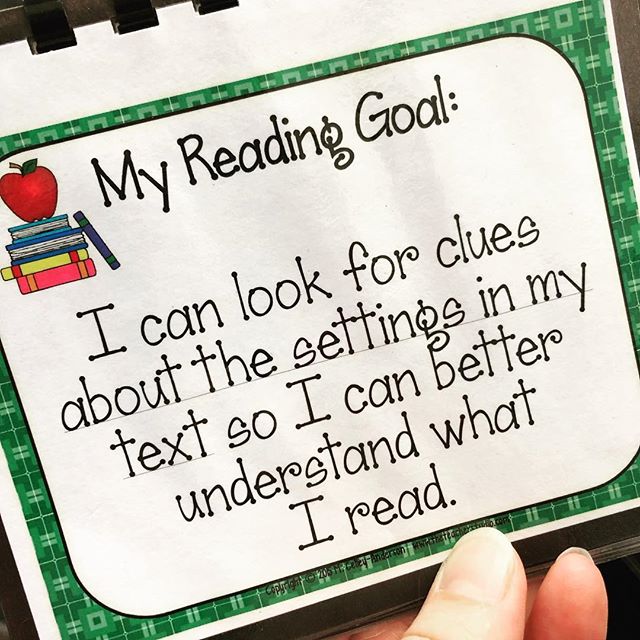 My Reading Goal:
I can look for clues
about the settings in my
text so I can better
understand what
I read.
Copyright ©